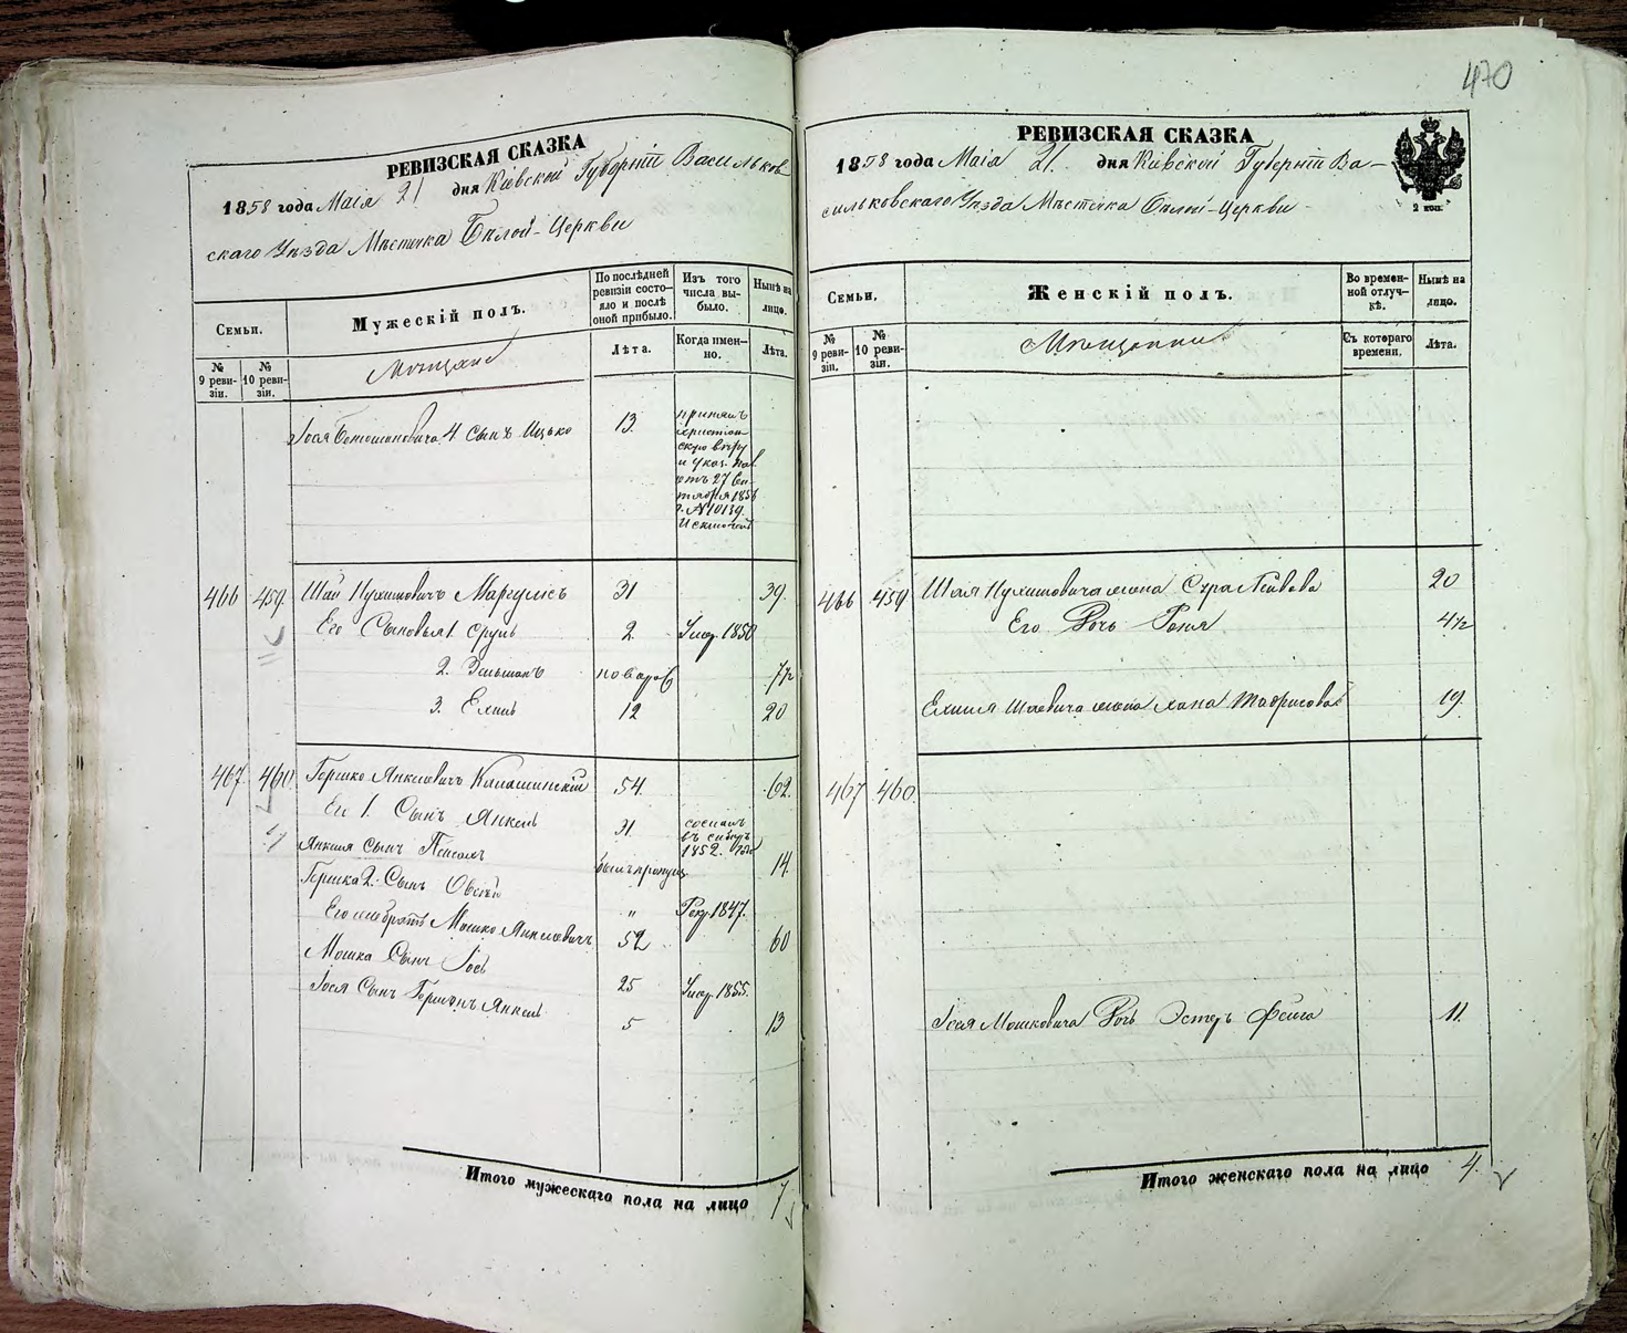 470
РЕВИЗСКАЯ СКАЗКА
1858 года Маія 21 дня Кіевской Губерніи Васильков-
скаго Уѣзда Мѣстечка Бѣлой-Церкви
Семьи.
Мужескій полъ.
По послѣдней ревизіи состо-
яло и послѣ оной прибыло.
Изъ того числа вы-
было.
Нынѣ на лицо.
№ 9 реви-
зіи.
№ 10 реви-
зіи.
Мѣщане
Лѣта.
Когда имен-
но.
Лѣта.
4 Сынъ Ицько 13
принялъ
христіан-
скую вѣру
и указ.
отъ 27
1856
г. № 10139.
466 459 Шая Нухимовичъ Маргулисъ 31 39.
Его Сыновья 1. Сруль 2 Умер. 1850
2. Зельманъ 7½
3. Ехиль 12 20
467 460 Гершко Янкелевичъ Калашинскій 54. 62.
Его 1. Сынъ Янкель 31
сосланъ
въ сибирь
1852. года
Янкеля Сынъ былъ пропущ. 14.
Гершка 2. Сынъ Овсей " Рекр. 1847.
Его же братъ Мошко Янкелевичъ 52 60
Мошка Сынъ Іосъ 25 Умер. 1855.
Іося Сынъ Гершонъ Янкель 5 13
Итого мужескаго пола на лицо 7
РЕВИЗСКАЯ СКАЗКА
1858 года Маія 21. дня Кіевской Губерніи Ва-
сильковскаго Уѣзда Мѣстечка Бѣлой-Церкви
2 коп.
Семьи.
Женскій полъ.
Во времен-
ной отлуч-
кѣ.
Нынѣ на лицо.
№ 9 реви-
зіи.
№ 10 реви-
зіи.
Мѣщанки
Съ котораго времени.
Лѣта.
466 459 Шая Нухимовича жена Сура Лейбова 20
Его Дочь 4½
Ехиля Шаевича жена Хана 19.
467 460.
Іося Мошковича Дочь Эстеръ Фейга 11.
Итого женскаго пола на лицо 4.